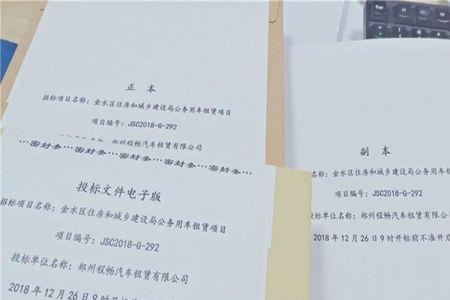 正 本
招标项目名称:金水区住房和城乡建设局公务用车租赁项目
项目编号:JSC2018-G-292
郑州程畅汽车租赁有限公司
…密封条……密封条……密封条……密封条…
投标文件电子版
招标项目名称:金水区住房和城乡建设局公务用车租赁项目
项目编号:JSC2018-G-292
投标单位名称:郑州程畅汽车租赁有限公司
2018年12月26日9时
副 本
招标项目名称:金水区住房和城乡建设局公务用
项目编号:JSC2018-G-292
投标单位名称:郑州程畅汽车租赁有限公
2018年12月26日9时开标前不准开启